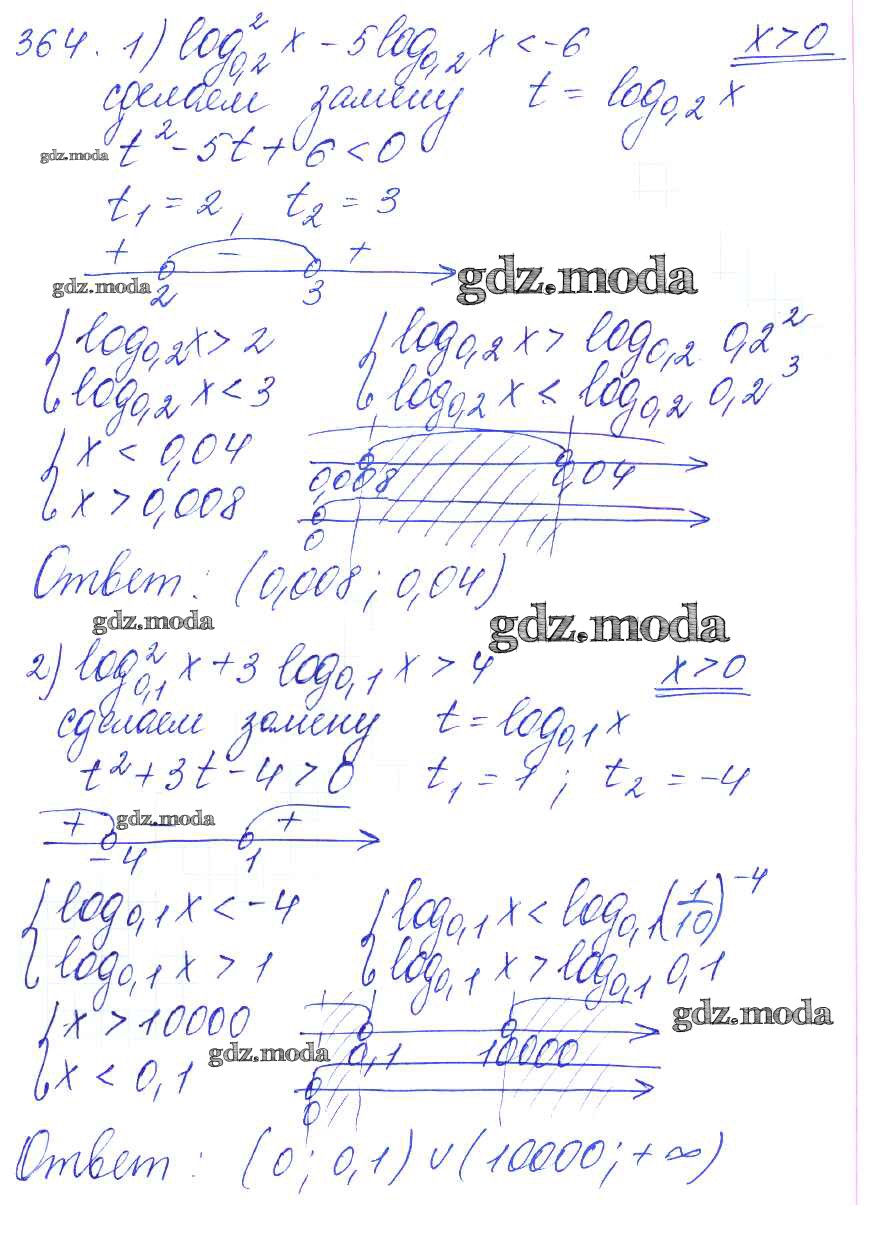 364. 1) log²₀,₂ x − 5log₀,₂ x < −6    x > 0
сделаем замену t = log₀,₂ x
gdz.moda t² − 5t + 6 < 0
t₁ = 2, t₂ = 3
+ − +
gdz.moda 2 3 gdz.moda
{ log₀,₂ x > 2    { log₀,₂ x > log₀,₂ 0,2²
{ log₀,₂ x < 3    { log₀,₂ x < log₀,₂ 0,2³
{ x < 0,04    0,008 0,04
{ x > 0,008    0
Ответ: (0,008; 0,04)
gdz.moda gdz.moda
2) log²₀,₁ x + 3 log₀,₁ x > 4    x > 0
сделаем замену t = log₀,₁ x
t² + 3t − 4 > 0    t₁ = 1; t₂ = −4
+ gdz.moda − +
−4 1
{ log₀,₁ x < −4    { log₀,₁ x < log₀,₁ (1/10)⁻⁴
{ log₀,₁ x > 1    { log₀,₁ x > log₀,₁ 0,1
{ x > 10000    gdz.moda
gdz.moda 0,1 10000
{ x < 0,1    0
Ответ: (0; 0,1) ∪ (10000; +∞)